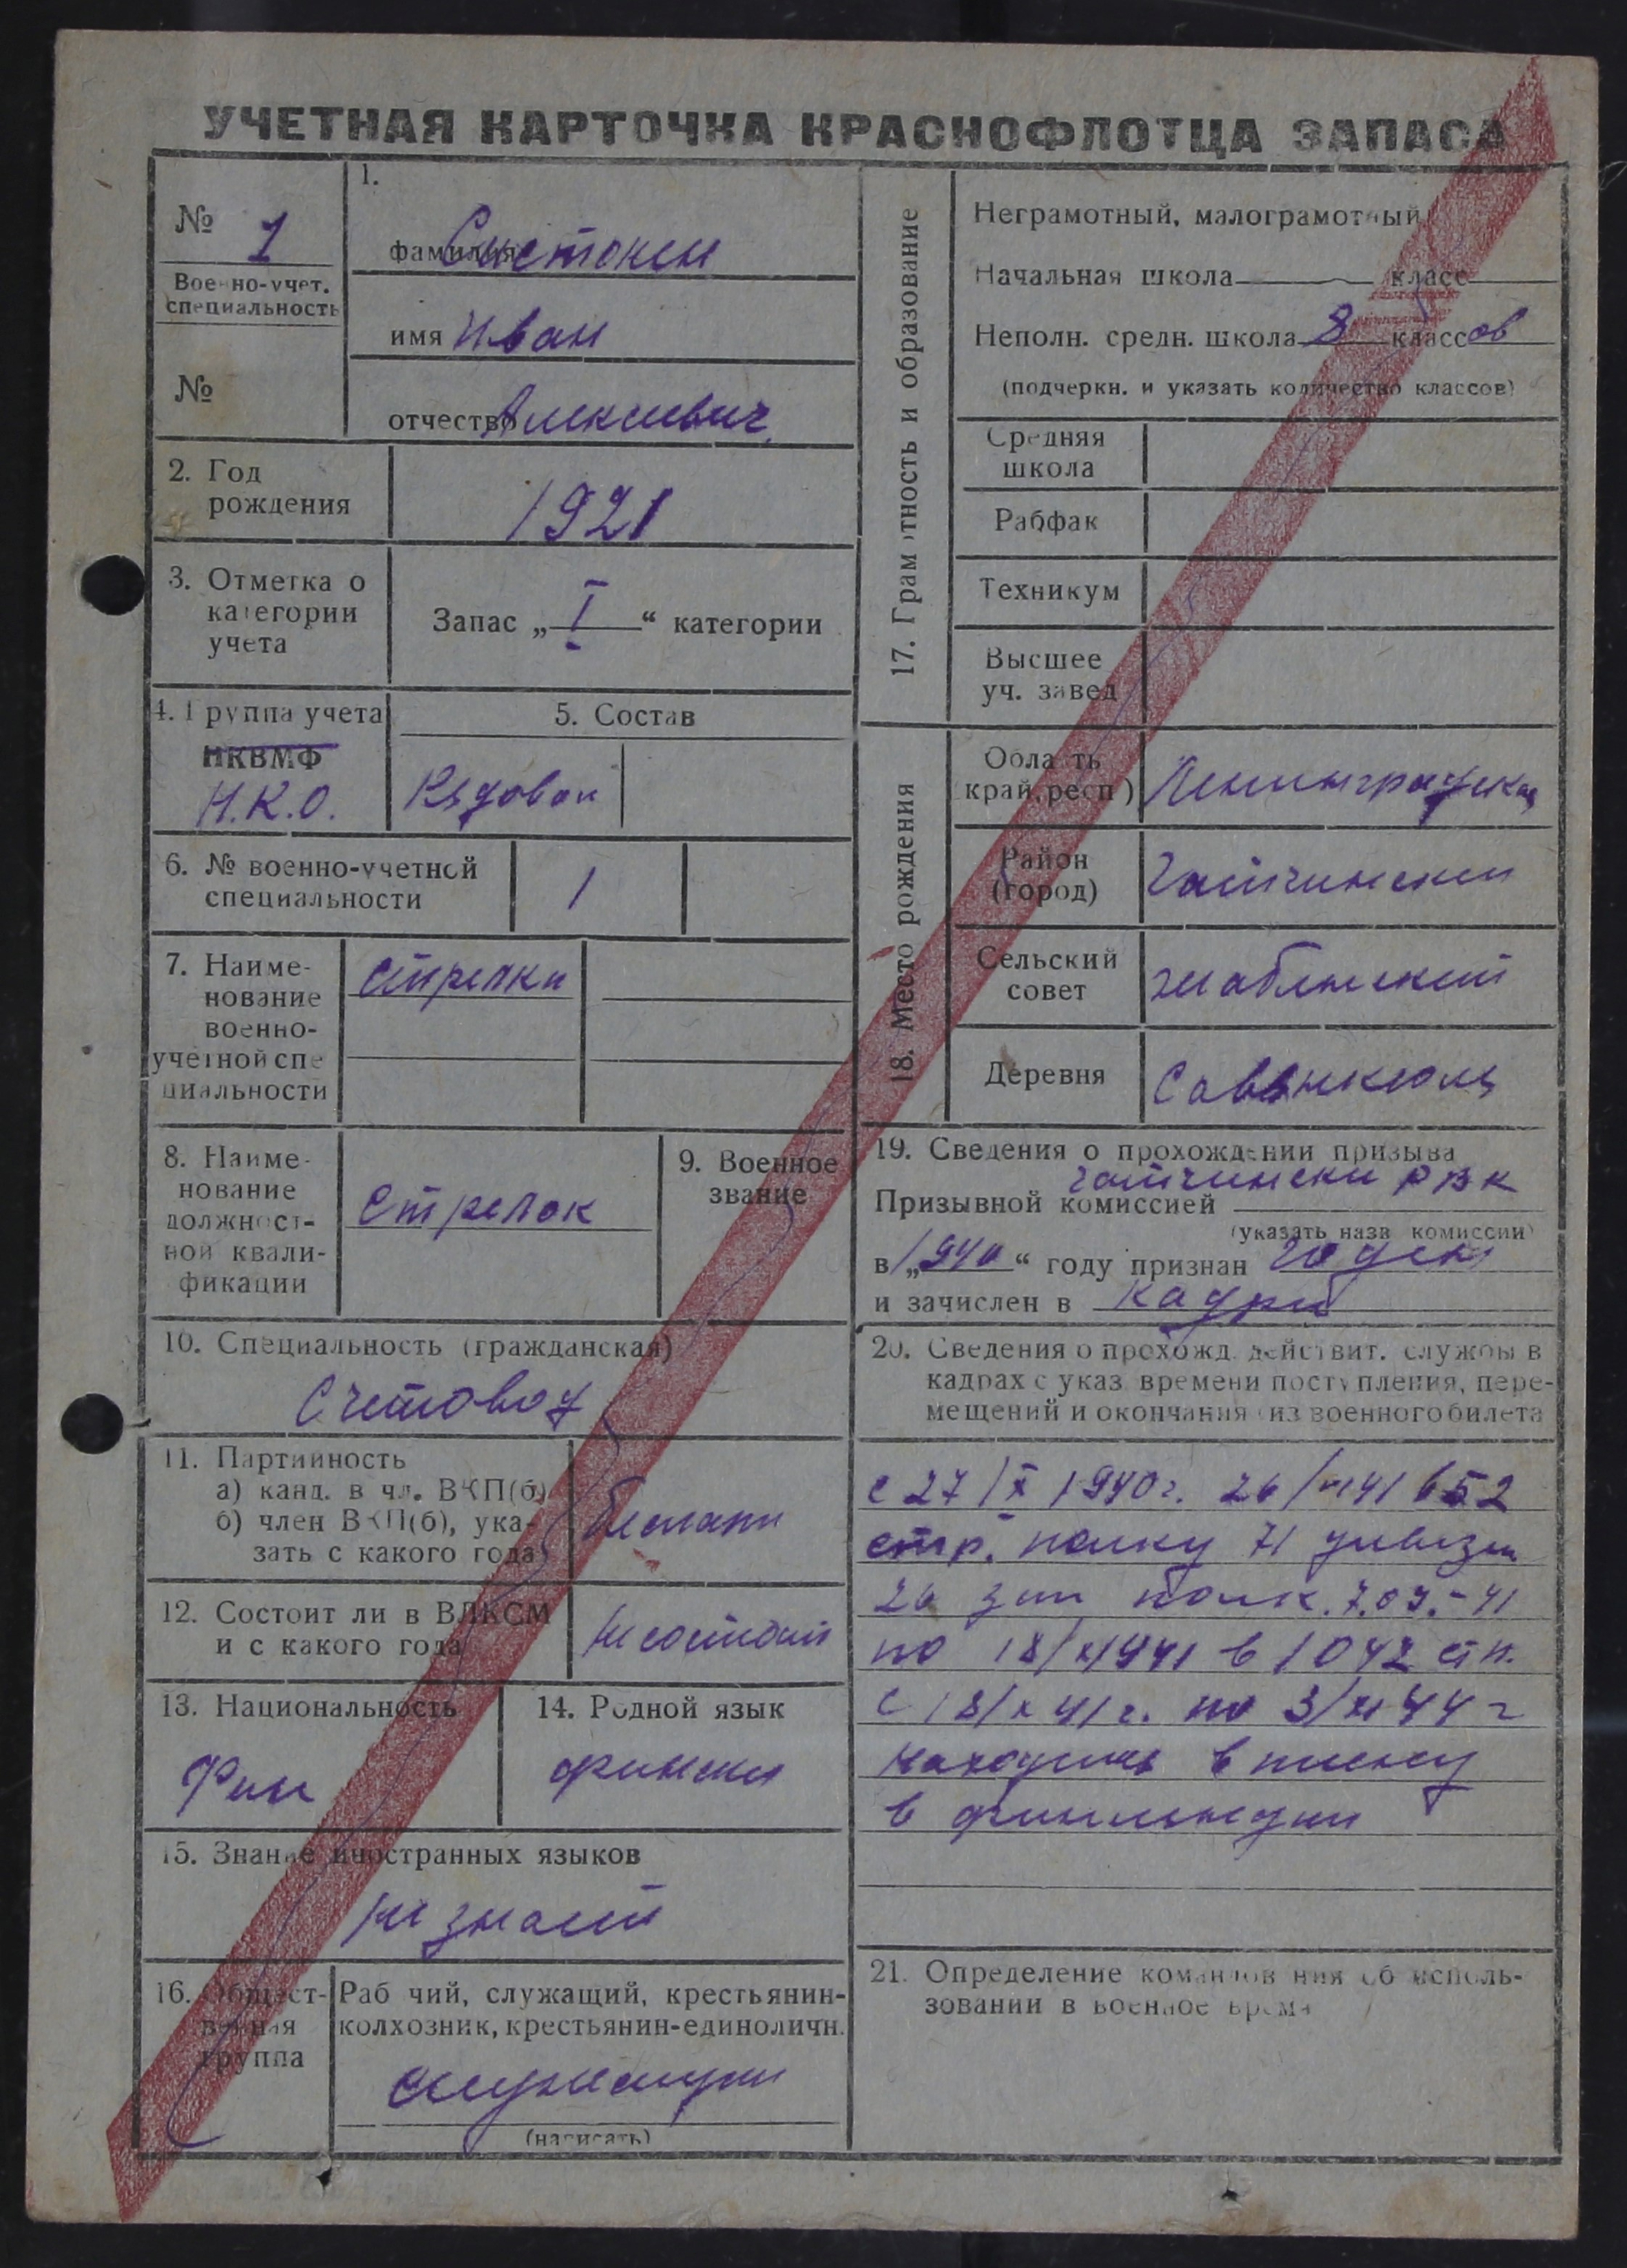 УЧЕТНАЯ КАРТОЧКА КРАСНОФЛОТЦА ЗАПАСА
№ 1
Военно-учет.
специальность
№
1.
фамилия
имя Иван
отчество Алексеевич
2. Год
рождения
1921
3. Отметка о
категории
учета
Запас „I“ категории
4. Группа учета
НКВМФ
Н.К.О.
5. Состав
Рядовой
6. № военно-учетной
специальности
1
7. Наиме-
нование
военно-
учетной спе
циальности
стрелки
8. Наиме-
нование
должност-
ной квали-
фикации
Стрелок
9. Военное
звание
10. Специальность (гражданская)
Счетовод
11. Партийность
а) канд. в чл. ВКП(б)
б) член ВКП(б), ука-
зать с какого года
беспарт
12. Состоит ли в ВЛКСМ
и с какого года
Не состоит
13. Национальность
Фин
14. Родной язык
финский
15. Знание иностранных языков
не знает
16. Общест-
венная
группа
Рабочий, служащий, крестьянин-
колхозник, крестьянин-единоличн.
служащий
(написать)
17. Грамотность и образование
Неграмотный, малограмотный
Начальная школа класс
Неполн. средн. школа 8 классов
(подчеркн. и указать количество классов)
Средняя
школа
Рабфак
Техникум
Высшее
уч. завед
18. Место рождения
Область
край, респ)
Ленинградская
Район
(город)
Гатчинский
Сельский
совет
Деревня
19. Сведения о прохождении призыва
Гатчински РВК
Призывной комиссией
(указать назв комиссии)
в „1940“ году признан годен
и зачислен в кадры
20. Сведения о прохожд. действит. службы в
кадрах с указ времени поступления, пере-
мещений и окончания (из военного билета
с 27/X 1940г. 652
стр. полку 71 дивизии
26 зап полк. 7.09.-41
по 18/X 1941 в 1042 сп.
с 18/X 41г. по 3/XI 44 г
находился в плену
в финляндии
21. Определение командования об исполь-
зовании в военное время